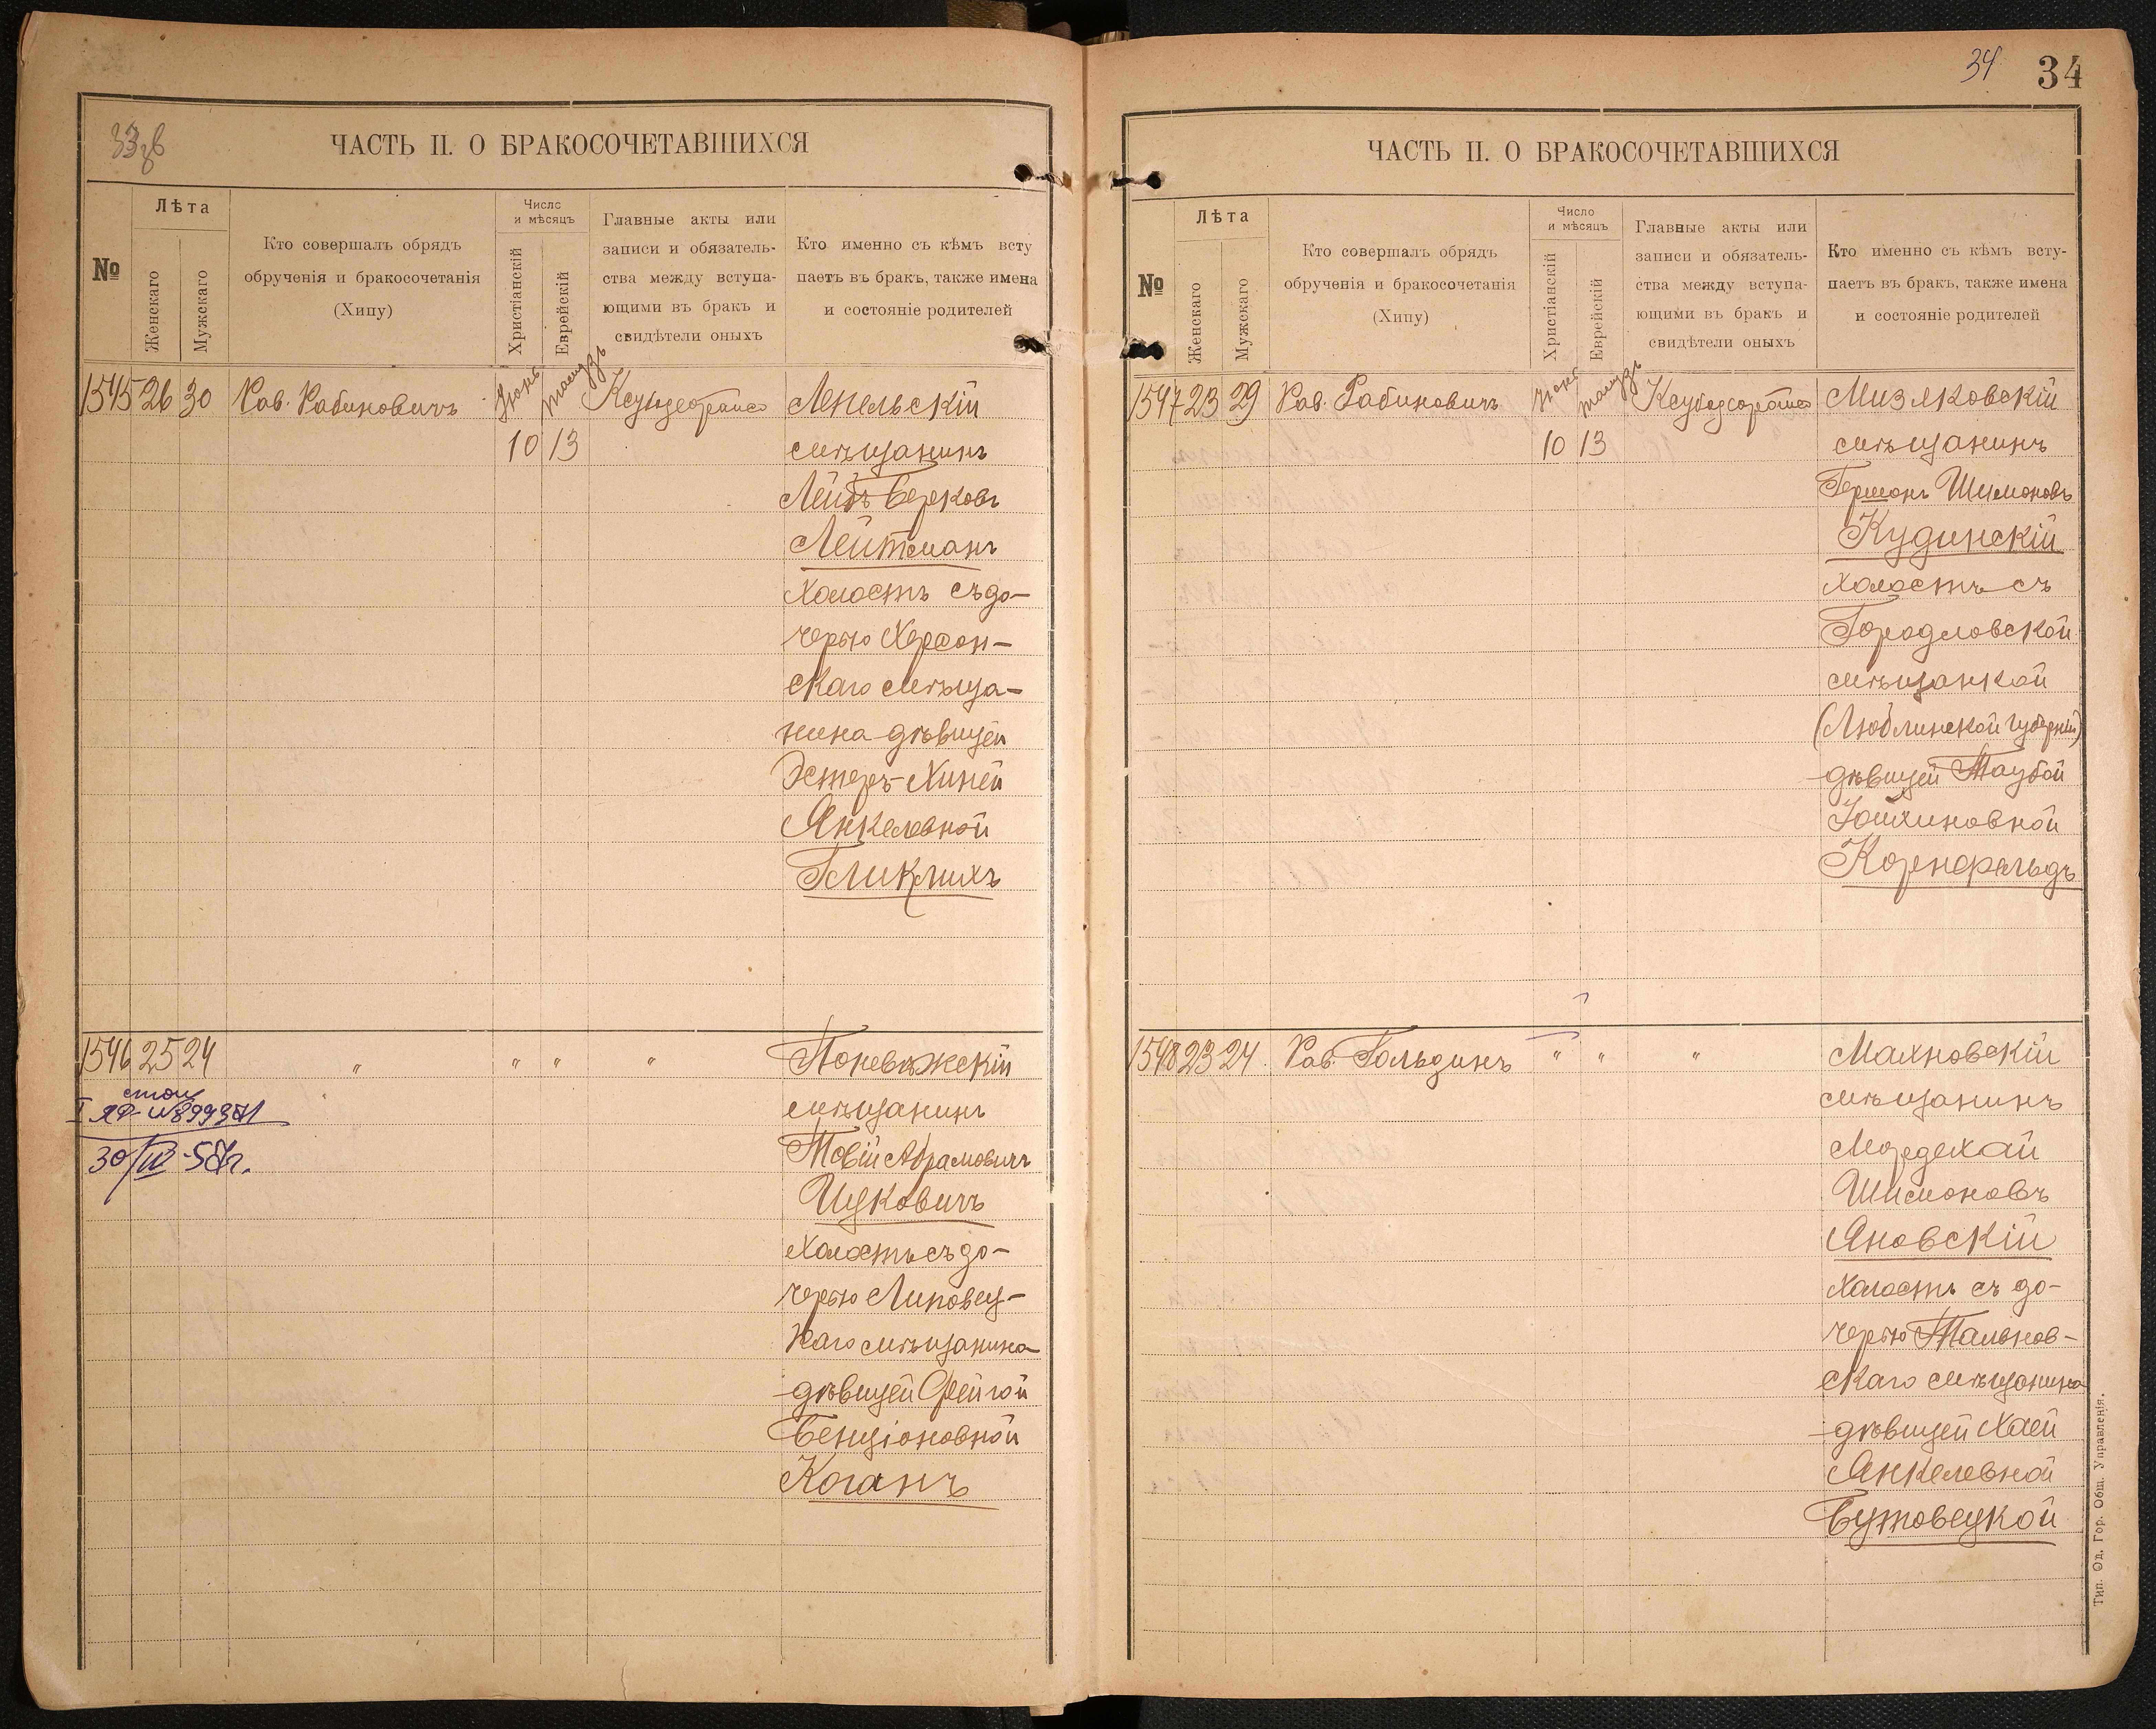 ЧАСТЬ II. О БРАКОСОЧЕТАВШИХСЯ
№
Лѣта
Женскаго
Мужскаго
Кто совершалъ обрядъ
обрученія и бракосочетанія
(Хипу)
Число
и мѣсяцъ
Христіанскій
Еврейскій
Главные акты или
записи и обязатель-
ства между вступа-
ющими въ бракъ и
свидѣтели оныхъ
Кто именно съ кѣмъ всту
паетъ въ бракъ, также имена
и состояніе родителей
1545 26 30 Рав. Рабиновичъ Іюнь Тамузъ Лепельскій
10 13 мѣщанинъ
Лейбъ Берковъ
Лейтманъ
холостъ съ до-
черью Херсон-
скаго мѣща-
нина дѣвицей
Эстеръ-Хиней
Янкелевной
Гликлихъ
1546 25 24 " " " " Поневѣжскій
мѣщанинъ
Товій Абрамовичъ
Ицковичъ
холостъ съ до-
черью Липовец-
каго мѣщанина
дѣвицей Фейгой
Бенціоновной
Коганъ
30/IV-57г.
34
34
ЧАСТЬ II. О БРАКОСОЧЕТАВШИХСЯ
№
Лѣта
Женскаго
Мужскаго
Кто совершалъ обрядъ
обрученія и бракосочетанія
(Хипу)
Число
и мѣсяцъ
Христіанскій
Еврейскій
Главные акты или
записи и обязатель-
ства между вступа-
ющими въ бракъ и
свидѣтели оныхъ
Кто именно съ кѣмъ всту-
паетъ въ бракъ, также имена
и состояніе родителей
1547 23 29 Рав. Рабиновичъ Іюнь Тамузъ Мизяковскій
10 13 мѣщанинъ
Германъ Шимоновъ
Кудинскій
холостъ съ
Городловской
мѣщанкой
(Люблинской губерніи)
дѣвицей Таубой
Іойхиновной
Корнфельдъ
1548 23 24. Рав. Гольдинъ " " " Махновскій
мѣщанинъ
Мордехай
Шимоновъ
Яновскій
холостъ съ до-
черью Тальнов-
скаго мѣщанина
дѣвицей Хаей
Янкелевной
Бутовецкой
Тип. Од. Гор. Общ. Управленія.